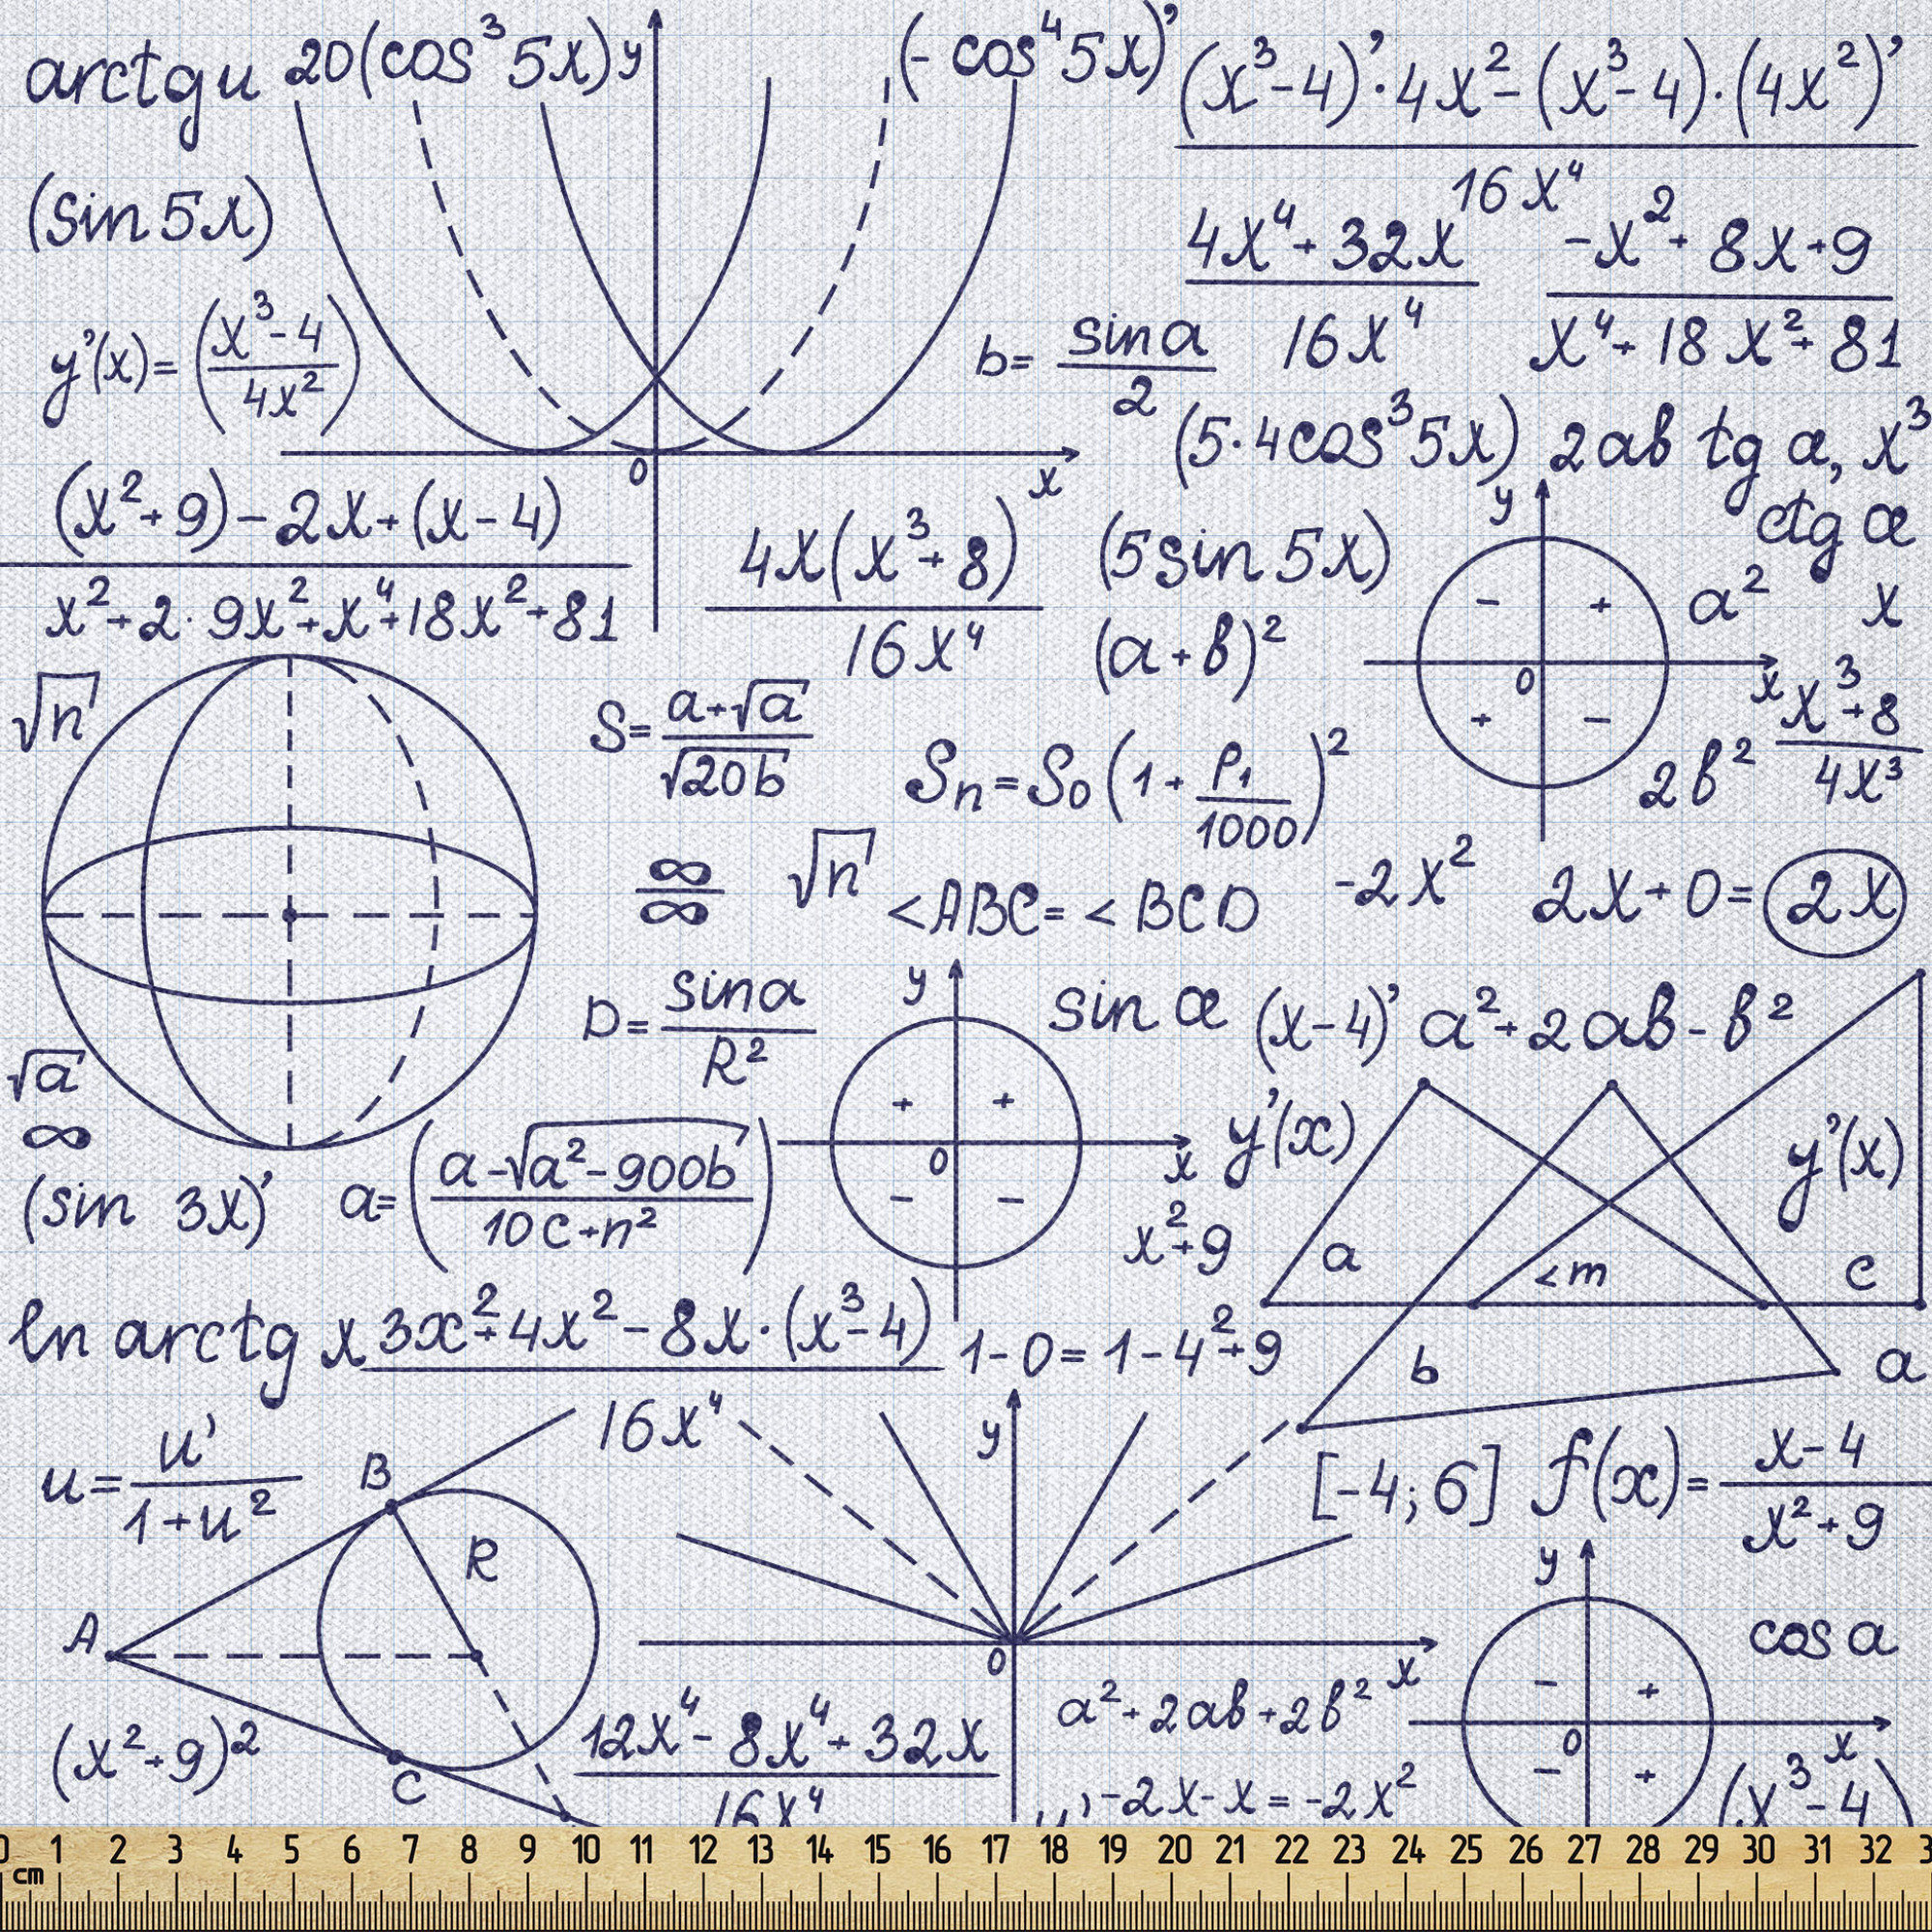 arctg u 20(cos³5x) y (-cos⁴5x)' (x³-4)'·4x²-(x³-4)·(4x²)'
16x⁴
(sin 5x)
4x⁴+32x
16x⁴
-x²+8x+9
x⁴+18x²+81
y'(x)=(x³-4 / 4x²)
b= sin a / 2
(5·4cos³5x) 2ab tg a, x³
0 x
(x²+9)-2x+(x-4)
x²+2·9x²+x⁴+18x²+81
4x(x³+8)
16x⁴
(5sin 5x)
y
ctg æ
(a+b)²
a² x
0 x
√n
S= a+√a / √20b
x³+8
4x³
Sn=S0(1+ P1 / 1000)²
2b²
∞
∞
√n
<ABC= <BCD
-2x² 2x+0= 2x
D= sin a / R²
y
0 x
+ +
- -
sin æ (x-4)' a²+2ab-b²
√a
∞
y'(x)
y'(x)
(sin 3x)'
a=(a-√a²-900b / 10c+n²)
x²+9
a <m c
ln arctg x 3x²+4x²-8x·(x³-4)
16x⁴
1-0=1-4²+9
b a
u= u' / 1+u²
B
y
[-4;6] f(x)= x-4 / x²+9
R
A
y
cos a
0 x
a²+2ab+2b²
(x²+9)²
C
12x⁴-8x⁴+32x
16x⁴
- +
0 x
- +
-2x-x=-2x²
(x³-4)
0 1 2 3 4 5 6 7 8 9 10 11 12 13 14 15 16 17 18 19 20 21 22 23 24 25 26 27 28 29 30 31 32
cm